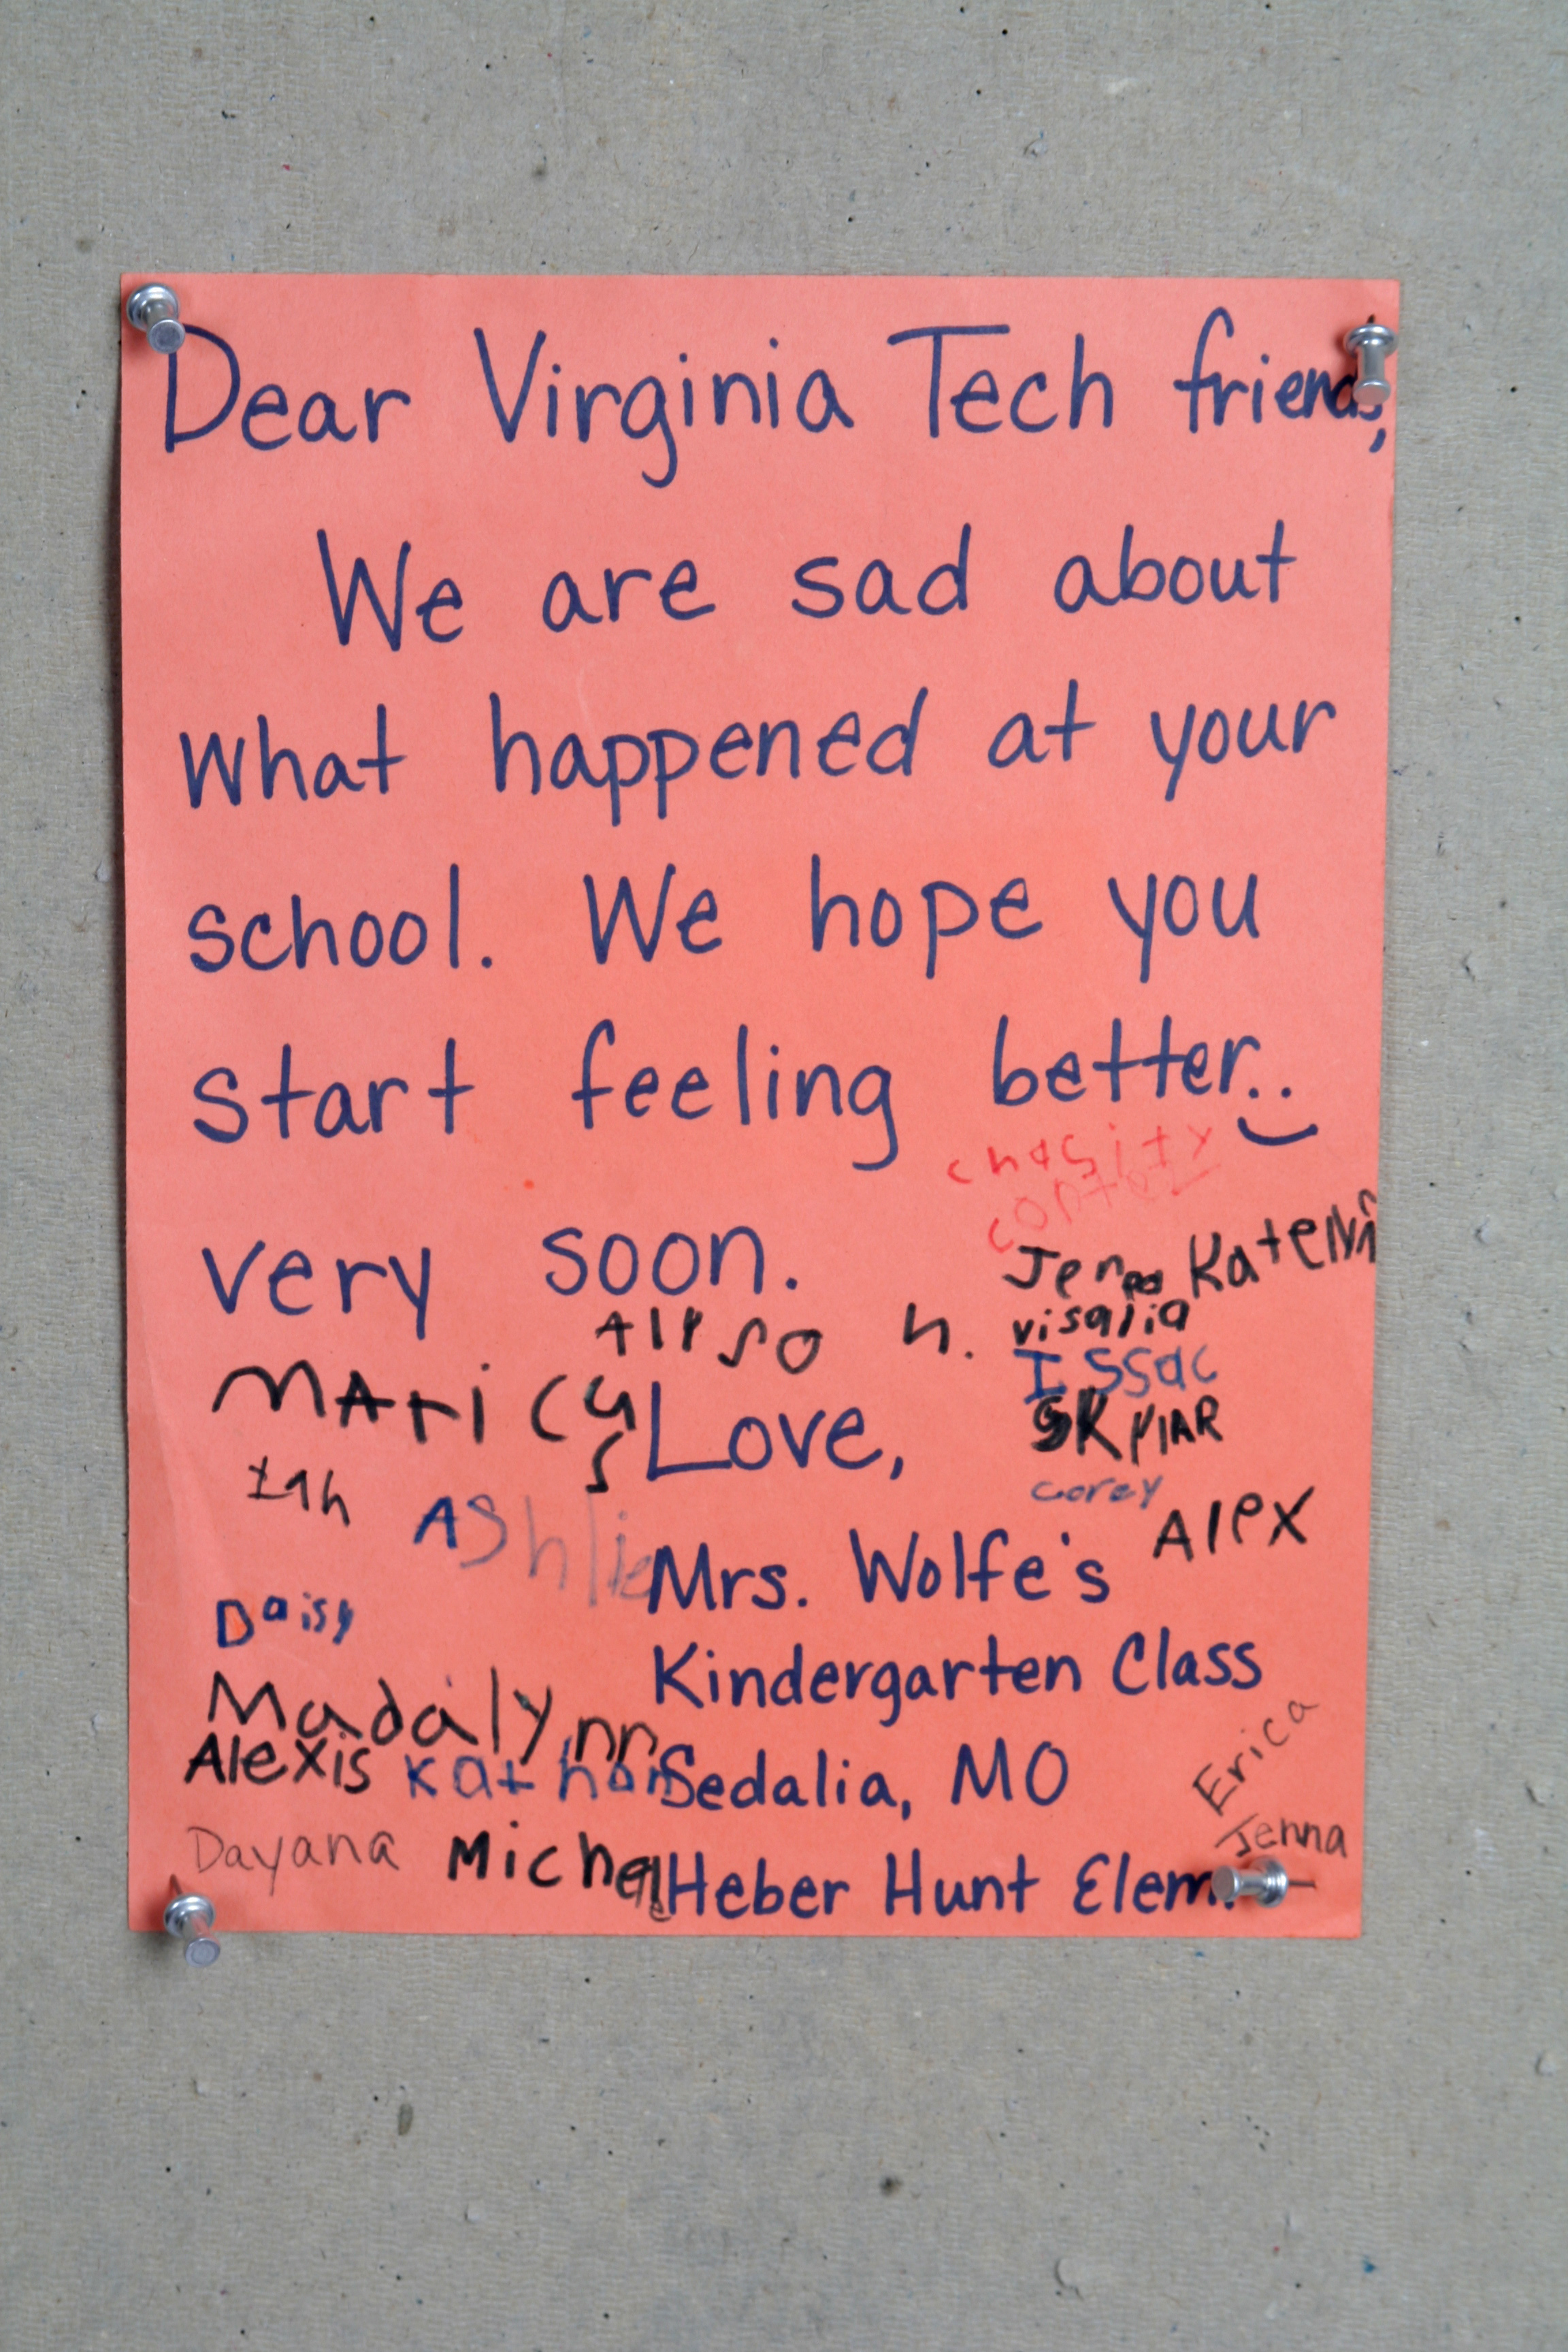 Dear Virginia Tech friends,
We are sad about
what happened at your
school. We hope you
start feeling better..
very soon.
chasity
Katelyn
visalia
h.
Issac
Love,
SKYlAR
corey
Alex
AShlie
Mrs. Wolfe's
Daisy
Kindergarten Class
Madalynn
Erica
Alexis
Sedalia, MO
Jenna
Dayana
Michael
Heber Hunt Elem.